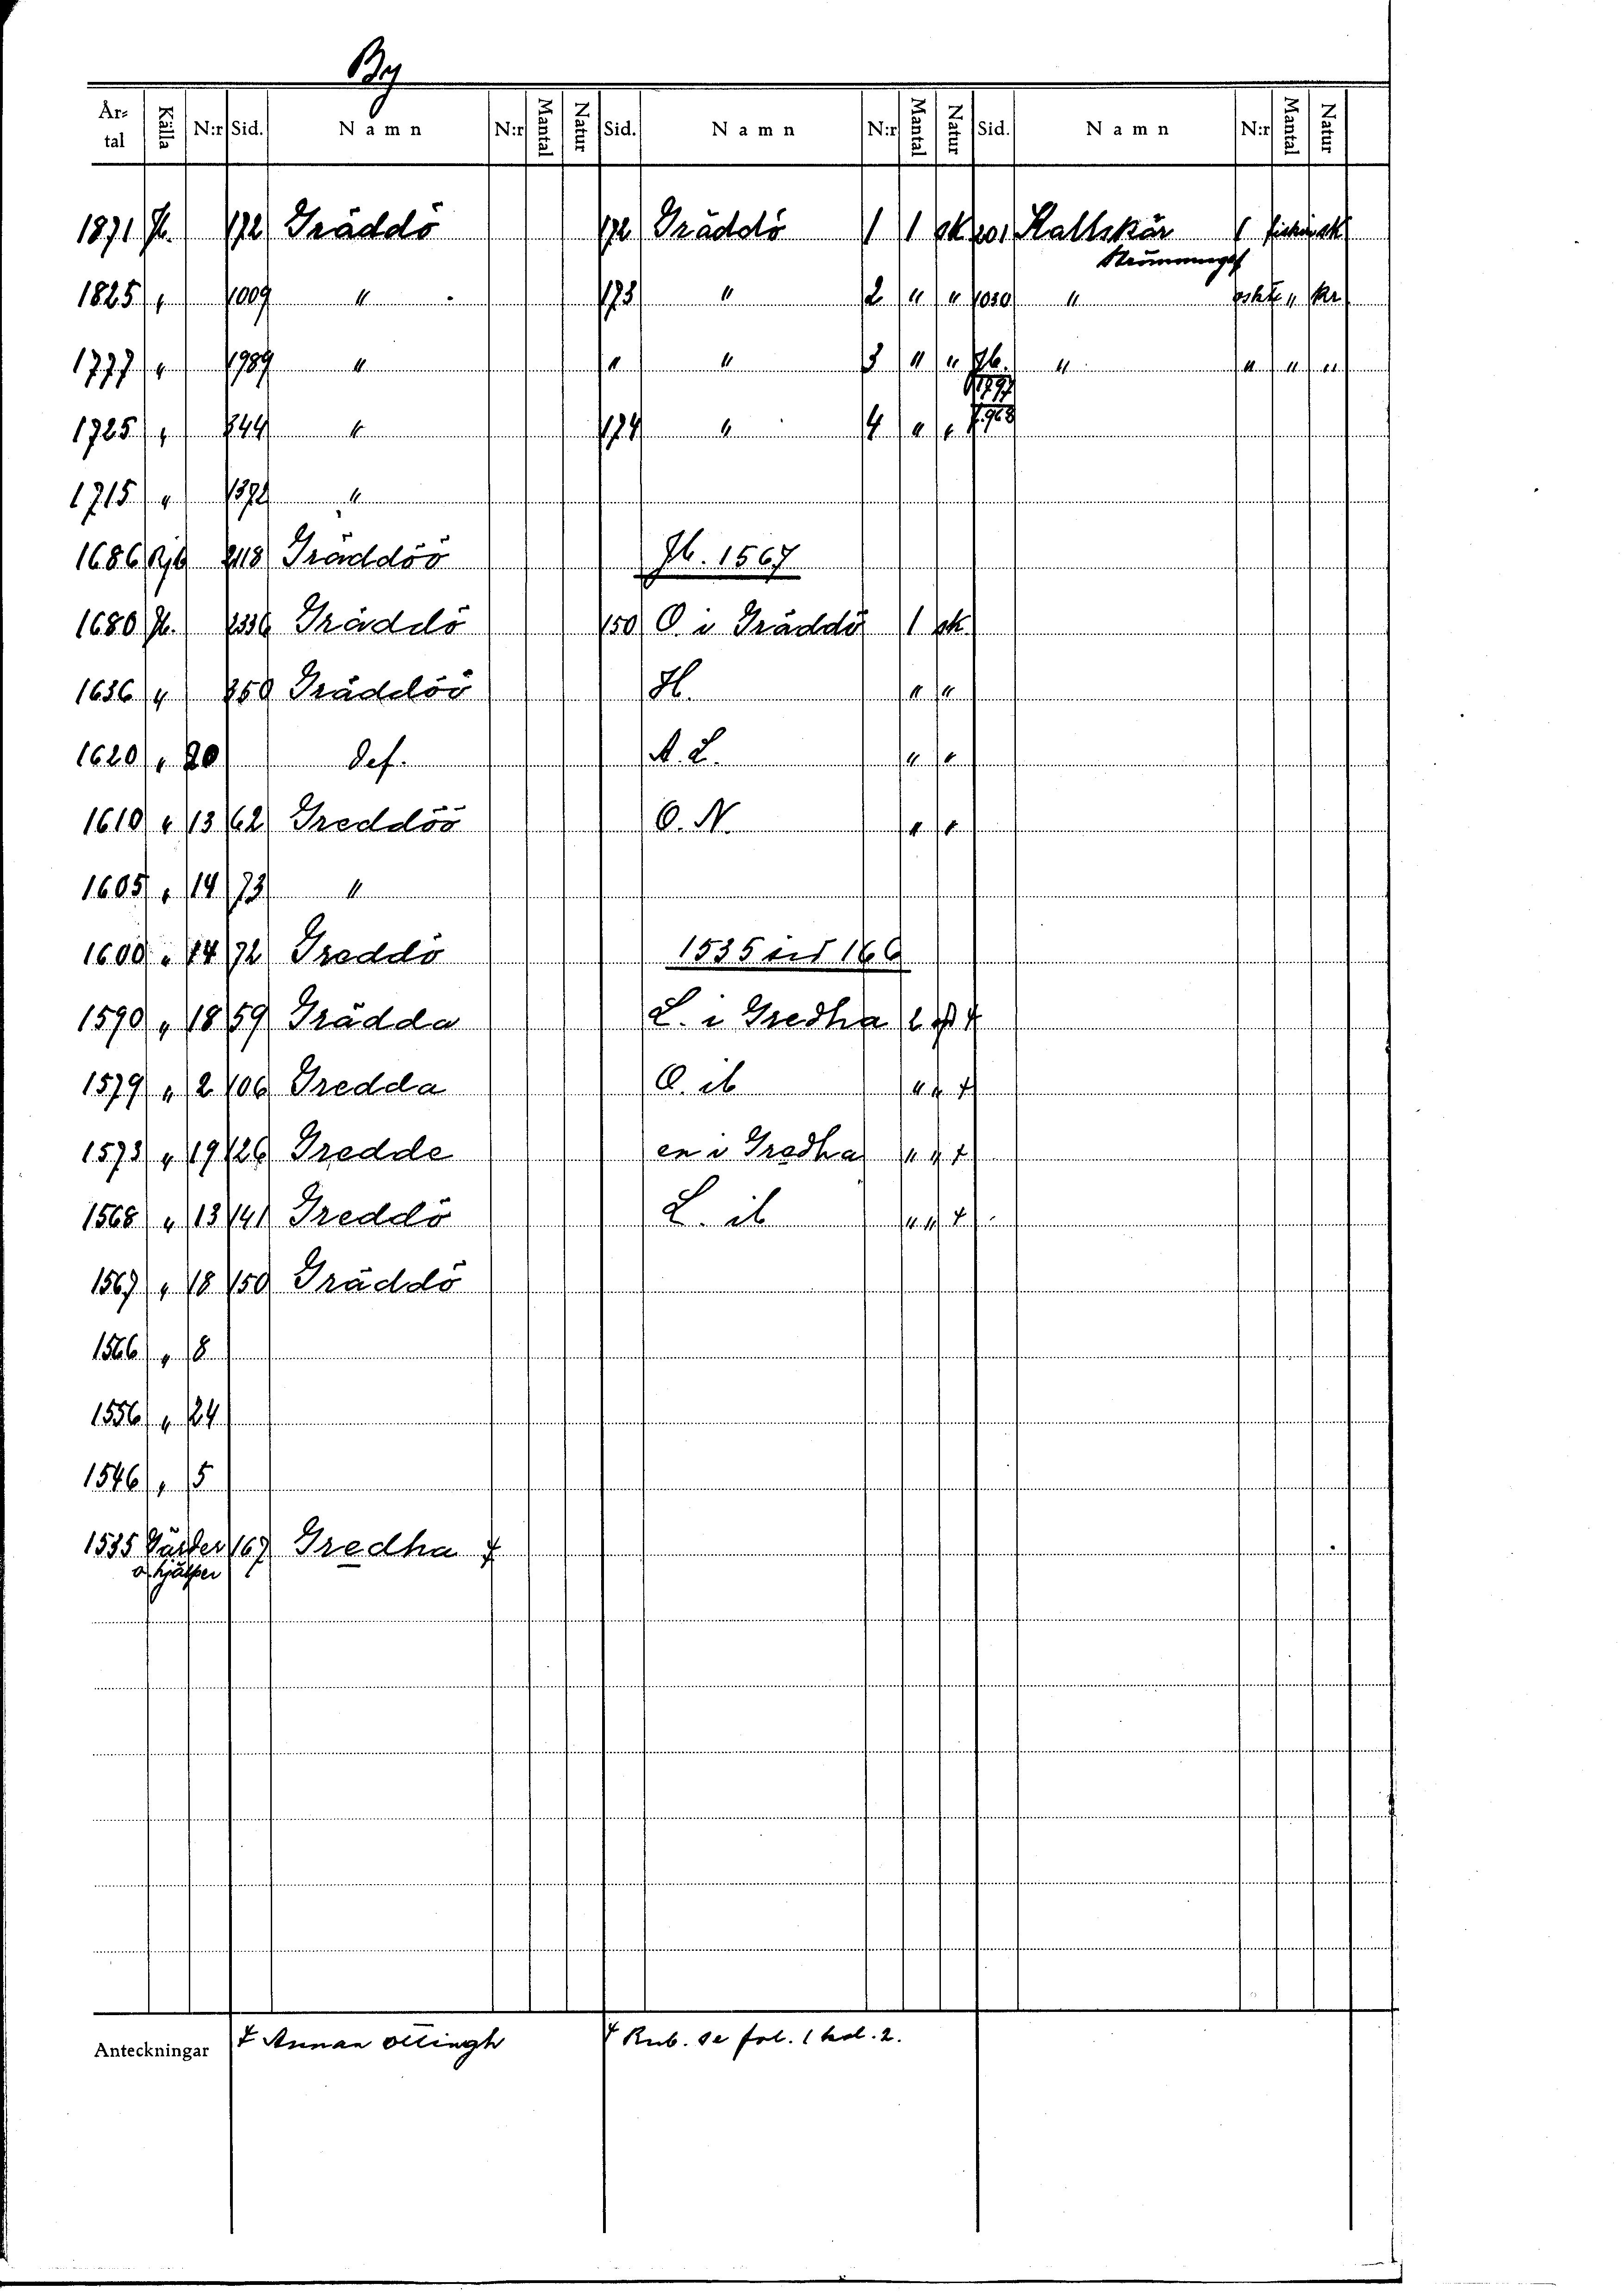 By
År-tal Källa N:r Sid. Namn N:r Mantal Natur Sid. Namn N:r Mantal Natur Sid. Namn N:r Mantal Natur
1871 Jb. 172 Gräddö 172 Gräddö 1 1 sk 201 Kallskär 1 sk
Strömmingsf
1825 " 1009 " 173 " 2 " " 1030 " oskt " kr
1777 " 1989 " " " 3 " " Jb. " " " "
1797
1725 " 844 " 174 " 4 " " s. 968
1715 " 1372 "
1686 Rjb 2118 Gräddöö Jb. 1567
1680 Jb. 2336 Gräddö 150 O. i Gräddö 1 sk
1636 " 350 Gräddöö H. " "
1620 " 20 def. A. L. " "
1610 " 13 62 Greddöö O. N. " "
1605 " 14 73 "
1600 " 14 72 Greddö 1535 sid 166
1590 " 18 59 Grädda L. i Gredha
1579 " 2 106 Gredda O. ib " "
1573 " 19 126 Gredde en i Gredha " "
1568 " 13 141 Greddö L. ib " "
1567 " 18 150 Gräddö
1566 " 8
1556 " 24
1546 " 5
1535 Gärder 167 Gredha
o. hjälper
Anteckningar Annan Rub. se fol. 1 kol. 2.